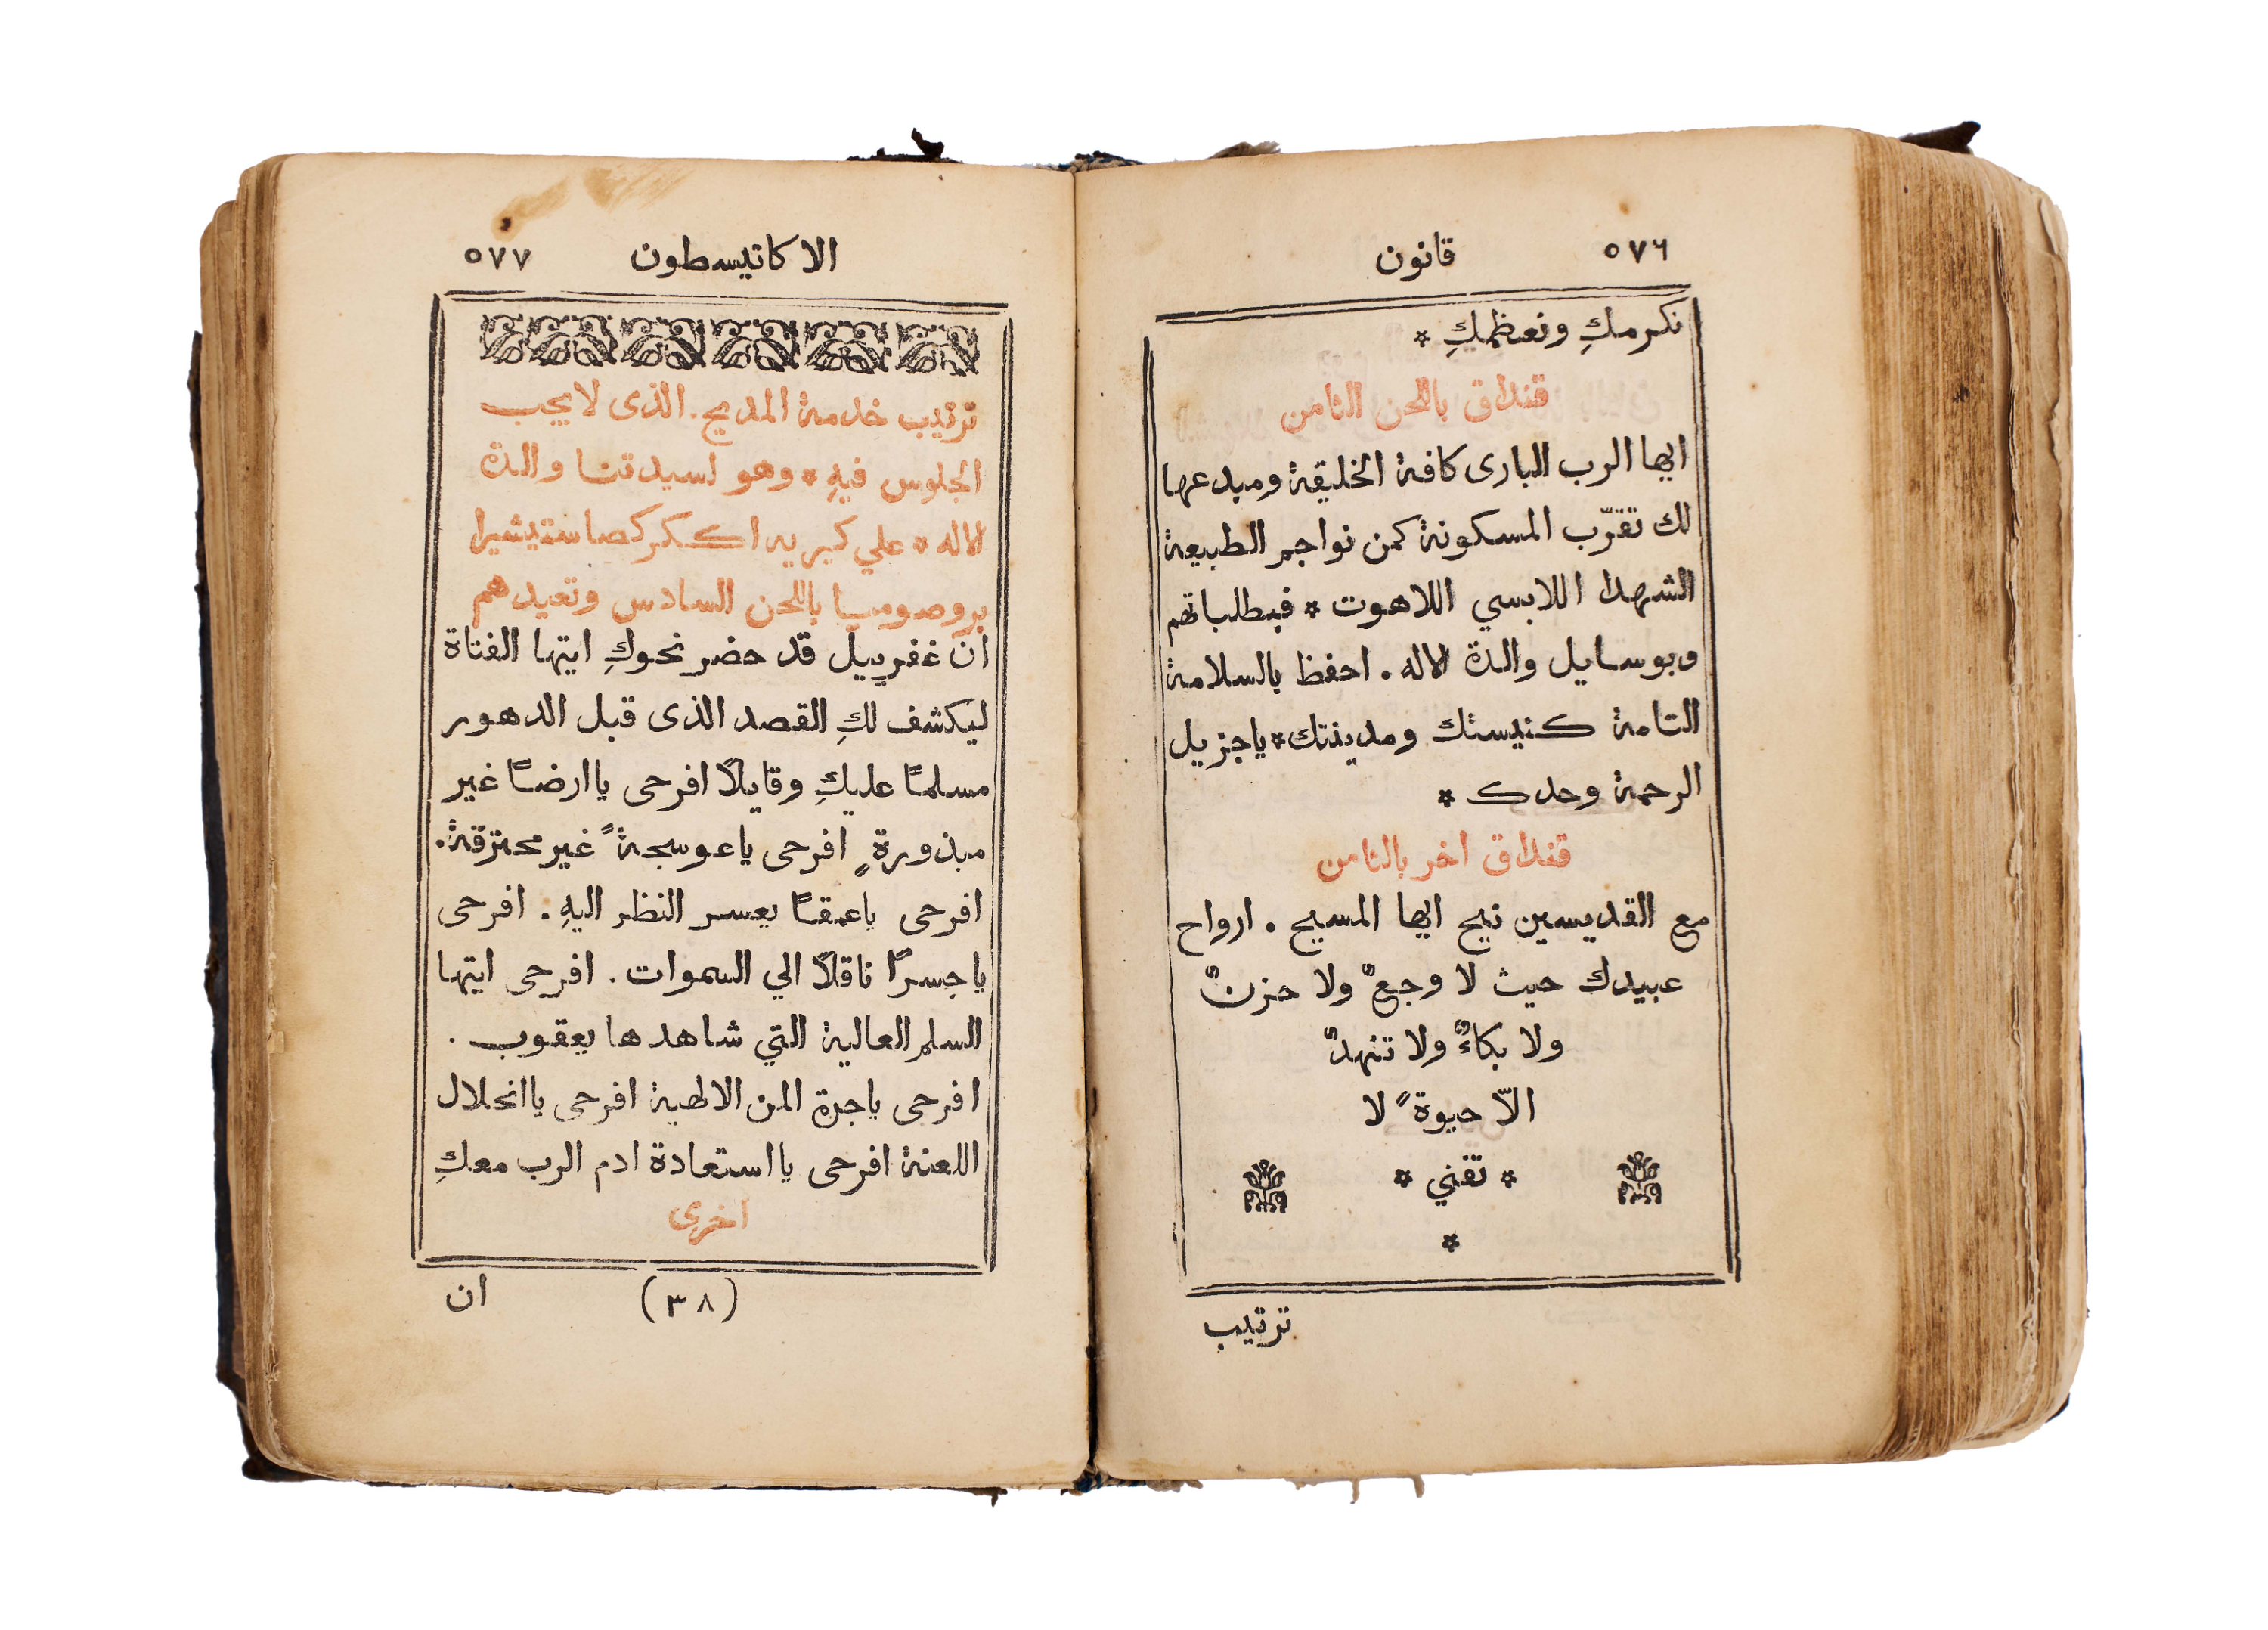 ٥٧٦ قانون
نكرمكِ ونعظمكِ *
قنداق باللحن الثامن
ايها الرب البارى كافة الخليقة ومبدعها
لك تقرّب المسكونة كمن نواجم الطبيعة
الشهدا اللابسي اللاهوت * فبطلباتهم
وبوسايل والدة الاله . احفظ بالسلامة
التامة كنيستك ومدينتك * ياجزيل
الرحمة وحدك *
قنداق اخر بالثامن
مع القديسين نيح ايها المسيح . ارواح
عبيدك حيث لا وجعٌ ولا حزنٌ
ولا بكاءٌ ولا تنهدٌ
الّا حيوةً لا
* تفني *
*
ترتيب
الاكاتيسطون ٥٧٧
ترتيب خدمة المديح . الذى لايجب
الجلوس فيهِ * وهو لسيدتنا والدة
الاله * علي كيريه اككركصا ستيشيرا
بروصوميا باللحن السادس وتعيدهم
ان غفرييل قد حضر نحوكِ ايتها الفتاة
ليكشف لكِ القصد الذى قبل الدهور
مسلمًا عليكِ وقايلًا افرحى ياارضًا غير
مبذورةٍ افرحى ياعوسجةً غير محترقة .
افرحى ياعمقًا يعسر النظر اليهِ . افرحى
ياجسرًا ناقلًا الي السموات . افرحى ايتها
السلم العالية التي شاهدها يعقوب .
افرحى ياجرة المن الالهية افرحى ياانحلال
اللعنة افرحى يااستعادة ادم الرب معكِ
اخرى
(٣٨) ان